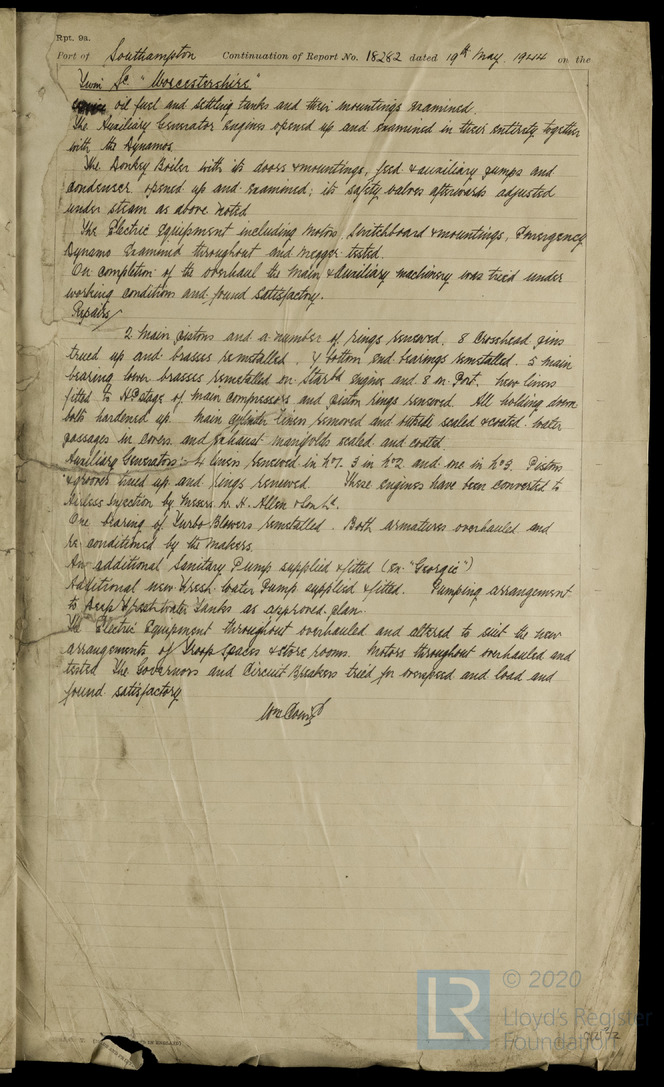 Rpt. 9a.
Port of Southampton Continuation of Report No. 18282 dated 19th May 1944 on the
Twin Sc. "Worcestershire"
oil fuel and settling tanks and their mountings examined
The Auxiliary Generator Engines opened up and examined in their entirety together
with the Dynamos
The Donkey Boiler with its doors & mountings, feed & auxiliary pumps and
condenser opened up and examined; its safety valves afterwards adjusted
under steam as above noted
The Electric Equipment including Motors, Switchboard & mountings, Emergency
Dynamo Examined throughout and megger tested.
On completion of the overhaul the main & auxiliary machinery was tried under
working conditions and found satisfactory.
Repairs/
2 Main pistons and a number of rings renewed. 8 Crosshead pins
trued up and brasses remetalled. 4 bottom end bearings remetalled. 5 main
bearing lower brasses remetalled on Starbd Engine and 8 in Port. New liners
fitted to H.P. stage of main compressors and piston rings renewed. All holding down
bolts hardened up. Main cylinder liners removed and outside scaled & coated. Water
passages in covers and exhaust manifolds scaled and coated.
Auxiliary Generators:- 4 liners renewed in No 1. 3 in No 2 and one in No 3. Pistons
& grooves trued up and rings renewed. These engines have been converted to
Airless Injection by Messrs W. H. Allen & Son Ld.
One bearing of Turbo Blowers remetalled. Both armatures overhauled and
re conditioned by the makers.
An additional Sanitary Pump supplied & fitted (Ex "Georgic")
Additional new Fresh Water Pump supplied & fitted. Pumping arrangement
to Deep Freshwater Tanks as approved plan.
The Electric Equipment throughout overhauled and altered to suit the new
arrangements of Troop spaces & store rooms. Motors throughout overhauled and
tested. The Governors and Circuit Breakers tried for overspeed and load and
found satisfactory
© 2020
LR
Lloyd's Register
Foundation